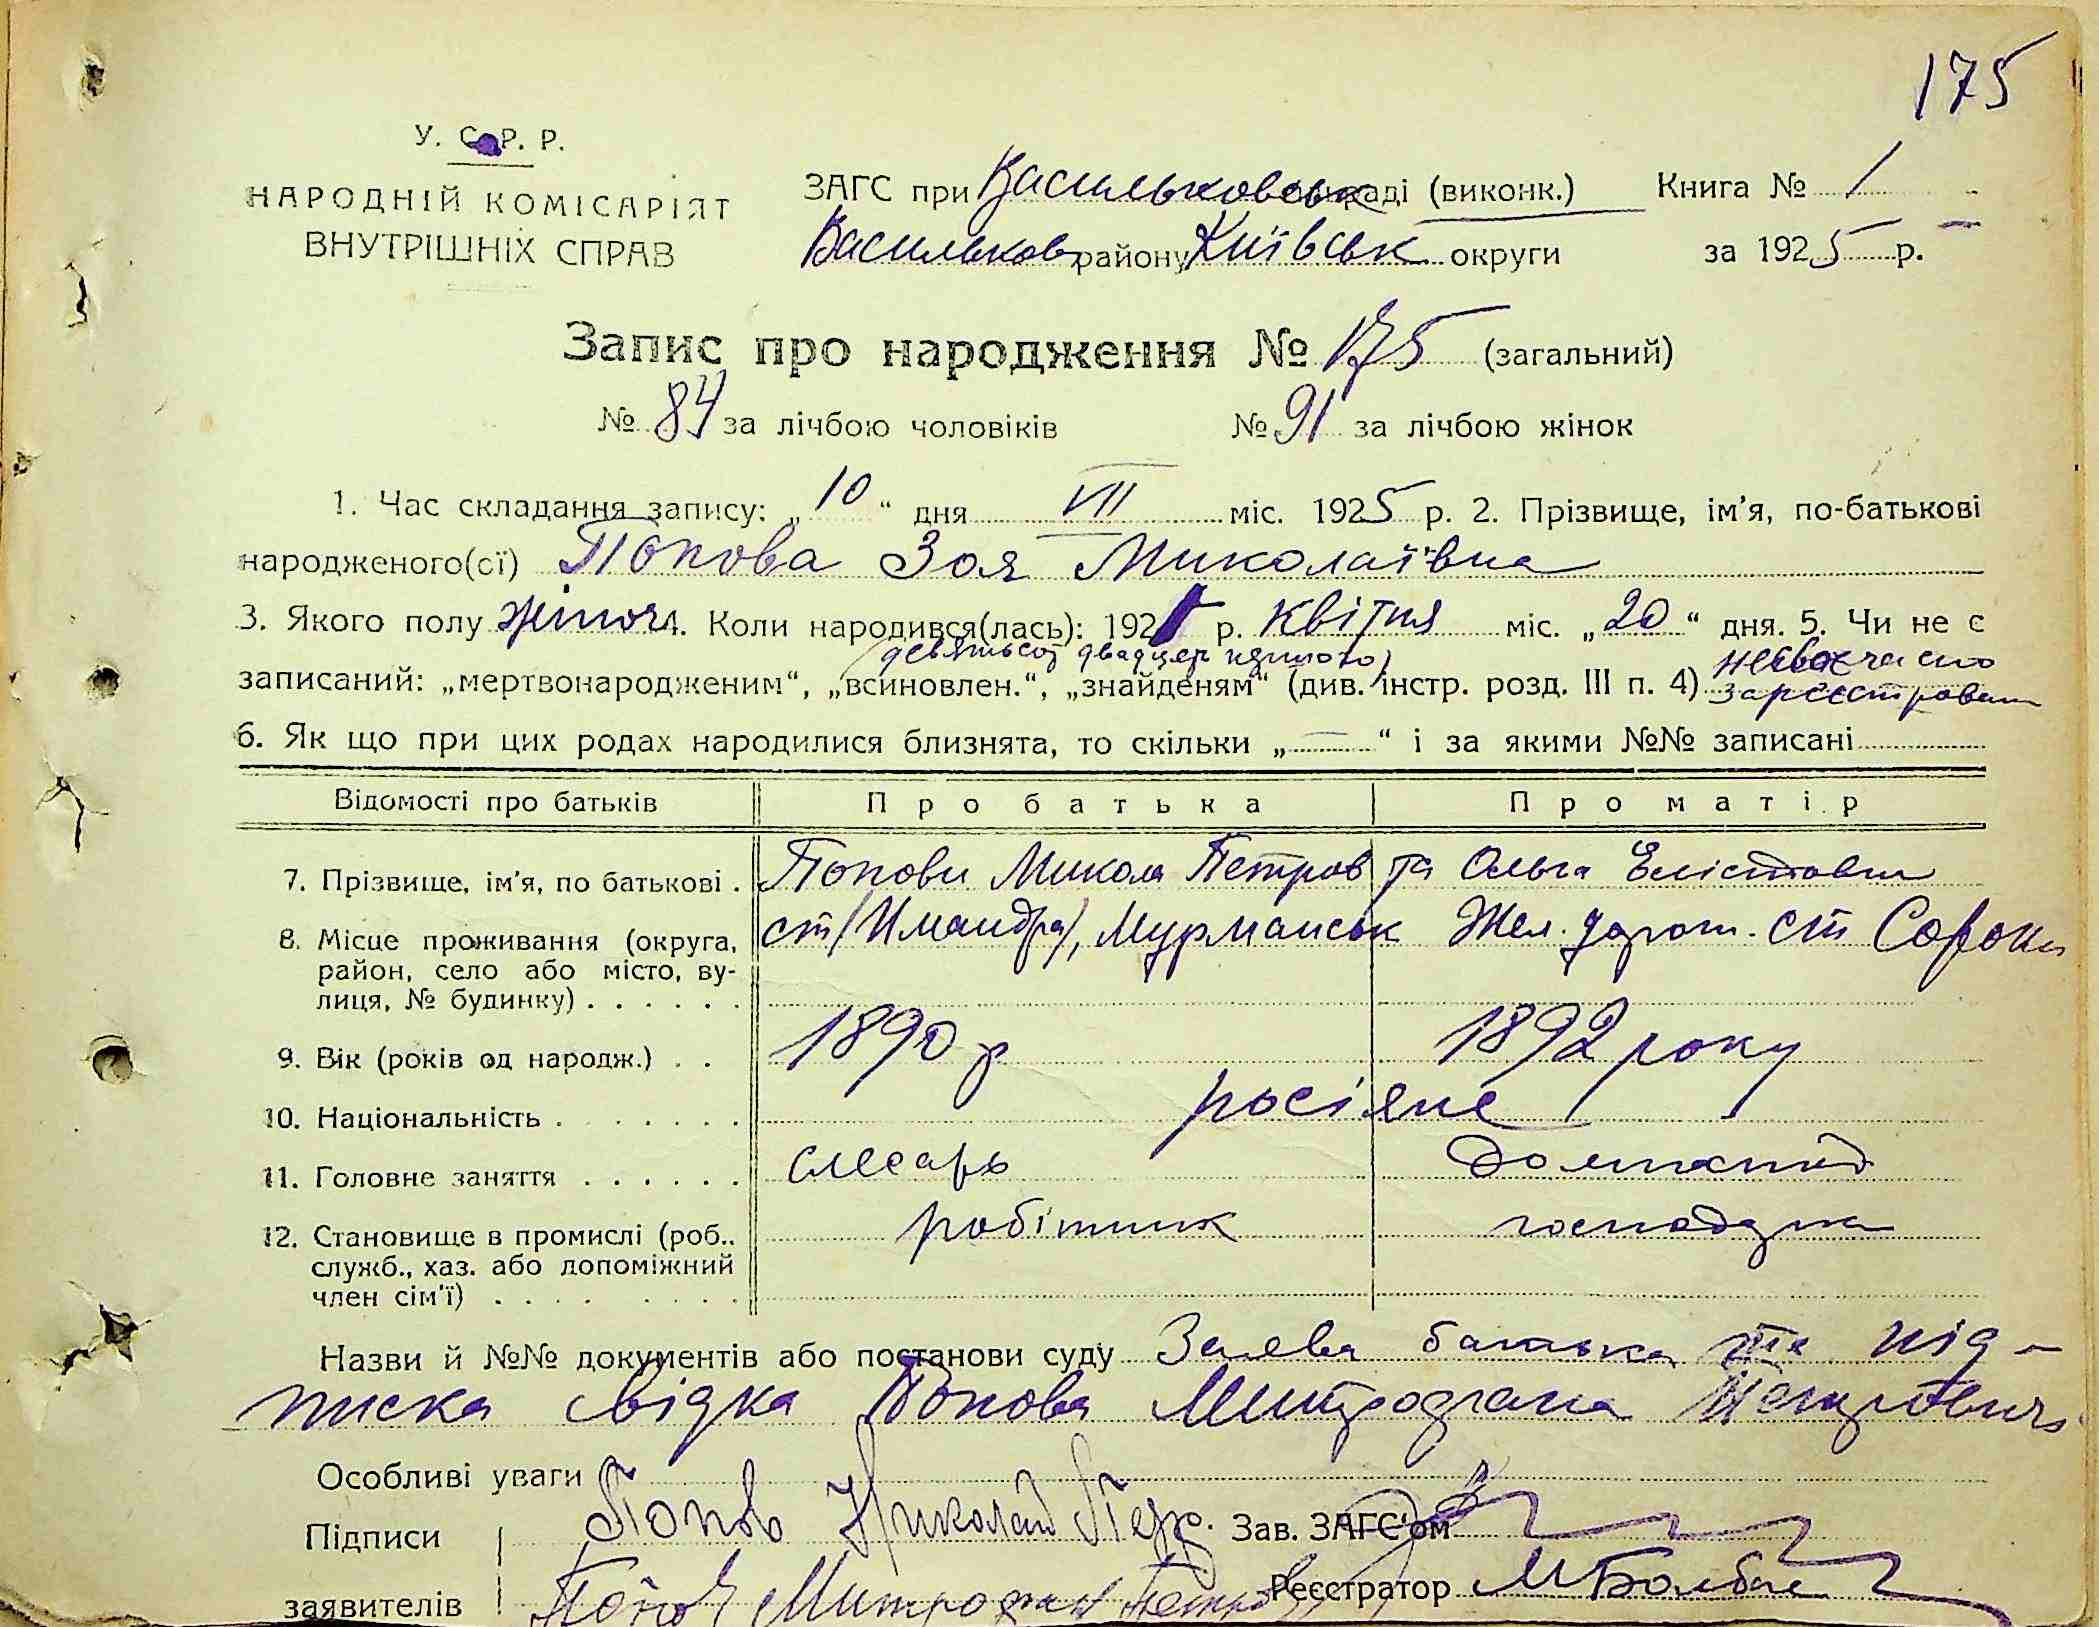 175
У. С. Р. Р.
НАРОДНІЙ КОМІСАРІЯТ
ВНУТРІШНІХ СПРАВ
ЗАГС при Васильковськ раді (виконк.) Книга № 1
Васильков району Київськ округи за 1925 р.
Запис про народження № 175 (загальний)
№ 84 за лічбою чоловіків № 91 за лічбою жінок
1. Час складання запису: „10“ дня VII міс. 1925 р. 2. Прізвище, ім'я, по-батькові
народженого(сї) Попова Зоя Миколаївна
3. Якого полу жіноч. Коли народився(лась): 192 р. квітня міс. „20“ дня. 5. Чи не є
(девятьсот двадцять пятого) несвоєчасно
записаний: „мертвонародженим“, „всиновлен.“, „знайденям“ (див. інстр. розд. III п. 4) зареєстрован
6. Як що при цих родах народилися близнята, то скільки „—“ і за якими №№ записані
Відомості про батьків Про батька Про матір
7. Прізвище, ім'я, по батькові . Попови Микола Петров та Ольга
8. Місце проживання (округа, ст /Имандра/, Мурманськ Жел. дорог. ст Сороки
район, село або місто, ву-
лиця, № будинку) . . . . . .
9. Вік (років од народж.) . . 1890 р 1892 року
10. Національність . . . . . . . росіяне
11. Головне заняття . . . . . . слесарь домашня
12. Становище в промислі (роб.. робітник господарка
служб., хаз. або допоміжний
член сім'ї) . . . . . . . .
Назви й №№ документів або постанови суду Заява батька та під-
писка свідка Попова Митрофана Петровича
Особливі уваги
Підписи Попов Николай Петр. Зав. ЗАГС'ом
заявителів Попов Митрофан Петров Реєстратор М Болбас